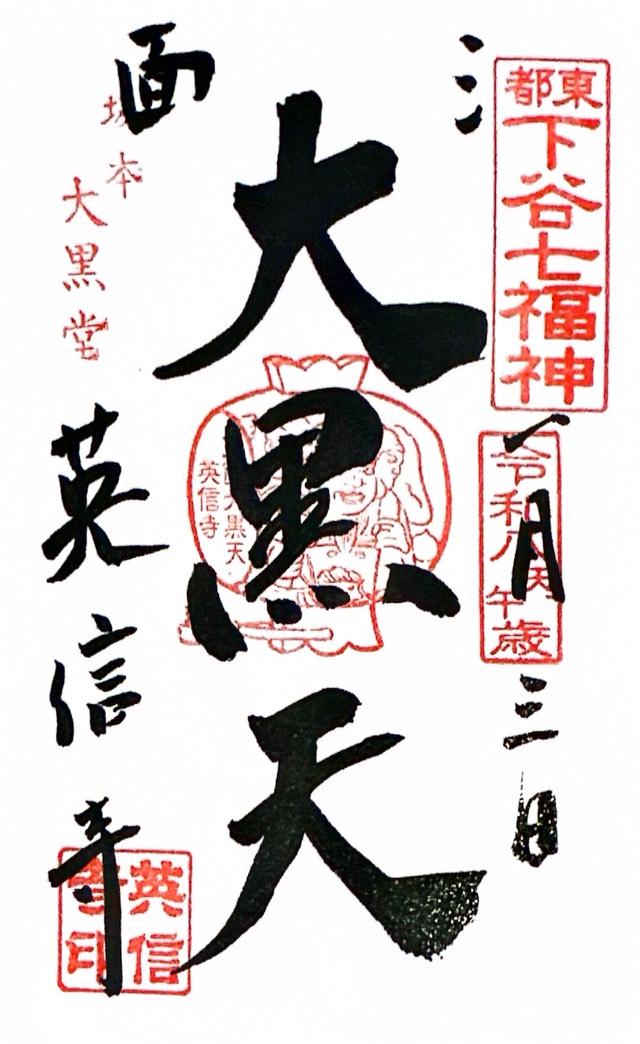 東都
下谷七福神
令和八丙午歳
一月三日
三面
大黒天
面大黒天
英信寺
坂本
大黒堂
英信寺
英信寺印